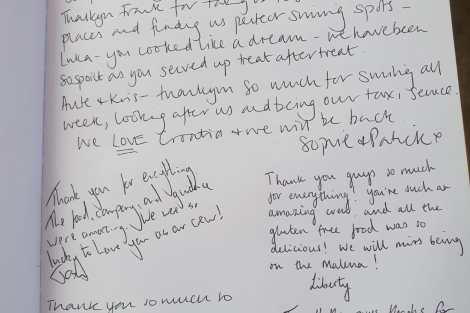 Thankyou Frane for taking us
places and finding us perfect swimming spots –
Luka – you cooked like a dream – we have been
so spoilt as you served up treat after treat.
Ante & Kris – thankyou so much for smiling all
week, looking after us and being our taxi, service.
We LOVE Croatia & we will be back
Sophie & Patrick x
Thank you for everything
The food, company and guidance
were amazing. We were so
lucky to have you as our crew!
Thank you guys so much
for everything. you're such an
amazing crew and all the
gluten free food was so
delicious! We will miss being
on the Malena!
Liberty
Thank you so much to